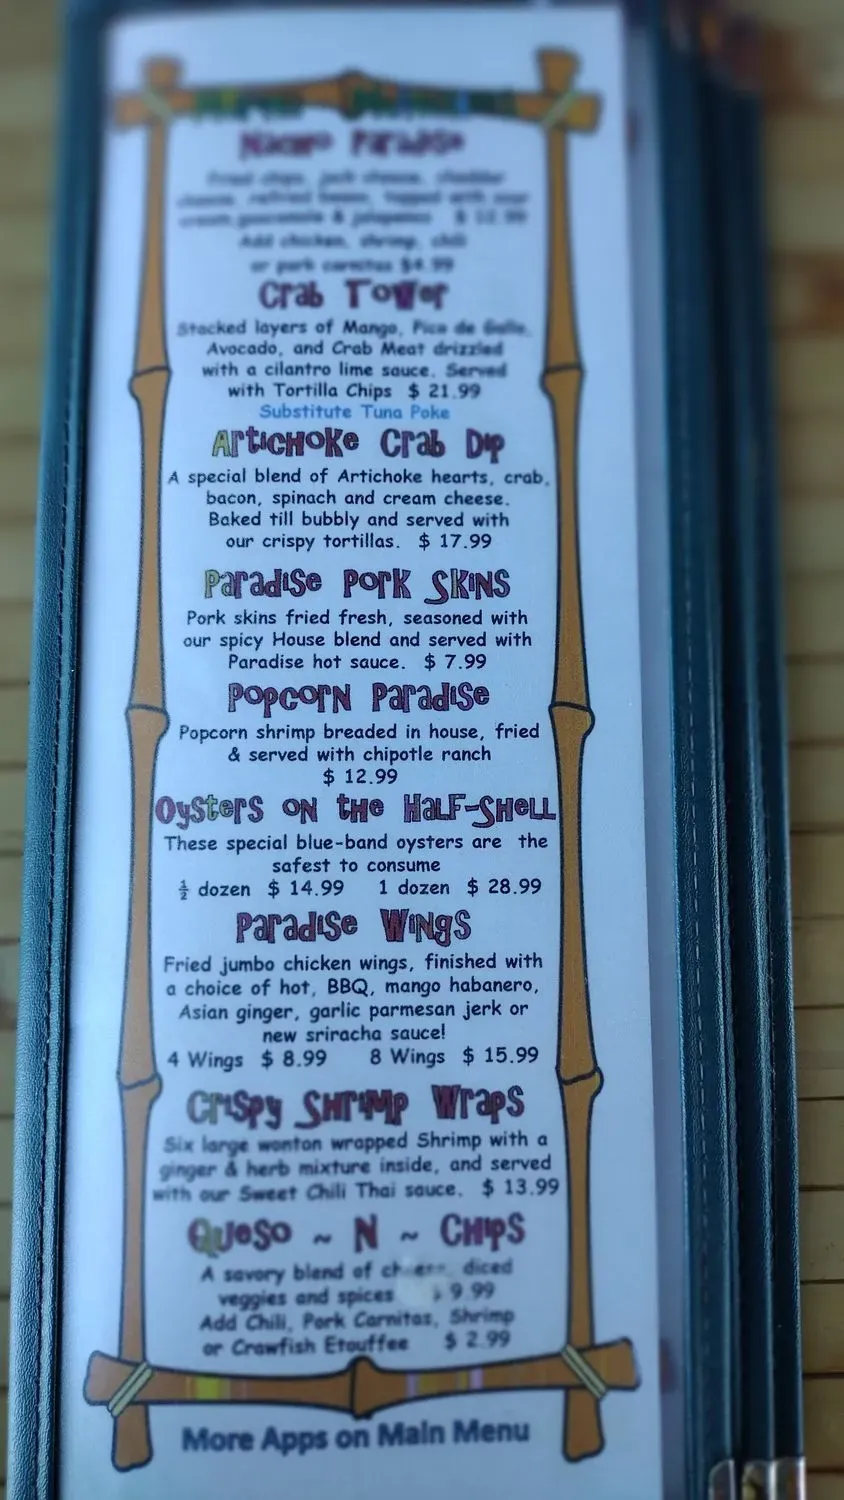 Nacho Paradise
Fried chips, jack cheese, cheddar
cheese, refried beans, topped with sour
cream, guacamole & jalapenos $ 12.99
Add chicken, shrimp, chili
or pork carnitas $4.99
Crab Tower
Stacked layers of Mango, Pico de Gallo,
Avocado, and Crab Meat drizzled
with a cilantro lime sauce. Served
with Tortilla Chips $ 21.99
Substitute Tuna Poke
Artichoke Crab Dip
A special blend of Artichoke hearts, crab,
bacon, spinach and cream cheese.
Baked till bubbly and served with
our crispy tortillas. $ 17.99
Paradise Pork Skins
Pork skins fried fresh, seasoned with
our spicy House blend and served with
Paradise hot sauce. $ 7.99
Popcorn Paradise
Popcorn shrimp breaded in house, fried
& served with chipotle ranch
$ 12.99
Oysters on the Half-Shell
These special blue-band oysters are the
safest to consume
½ dozen $ 14.99 1 dozen $ 28.99
Paradise Wings
Fried jumbo chicken wings, finished with
a choice of hot, BBQ, mango habanero,
Asian ginger, garlic parmesan jerk or
new sriracha sauce!
4 Wings $ 8.99 8 Wings $ 15.99
Crispy Shrimp Wraps
Six large wonton wrapped Shrimp with a
ginger & herb mixture inside, and served
with our Sweet Chili Thai sauce. $ 13.99
Queso ~ N ~ Chips
A savory blend of cheese, diced
veggies and spices $ 9.99
Add Chili, Pork Carnitas, Shrimp
or Crawfish Etouffee $ 2.99
More Apps on Main Menu